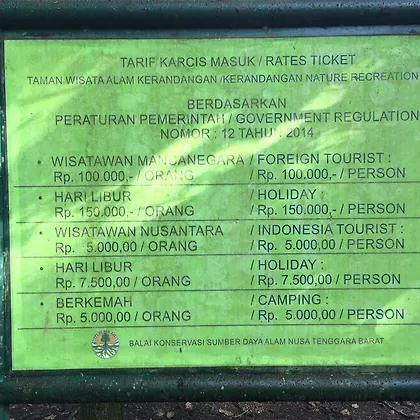 TARIF KARCIS MASUK / RATES TICKET
TAMAN WISATA ALAM KERANDANGAN /KERANDANGAN NATURE RECREATION
BERDASARKAN
PERATURAN PEMERINTAH / GOVERNMENT REGULATION
NOMOR : 12 TAHUN 2014
• WISATAWAN MANCANEGARA / FOREIGN TOURIST :
Rp. 100.000,- / ORANG / Rp. 100.000,- / PERSON
• HARI LIBUR / HOLIDAY :
Rp. 150.000,- / ORANG / Rp. 150.000,- / PERSON
• WISATAWAN NUSANTARA / INDONESIA TOURIST :
Rp. 5.000,00 / ORANG / Rp. 5.000,00 / PERSON
• HARI LIBUR / HOLIDAY :
Rp. 7.500,00 / ORANG / Rp. 7.500,00 / PERSON
• BERKEMAH / CAMPING :
Rp. 5.000,00 / ORANG / Rp. 5.000,00 / PERSON
BALAI KONSERVASI SUMBER DAYA ALAM NUSA TENGGARA BARAT